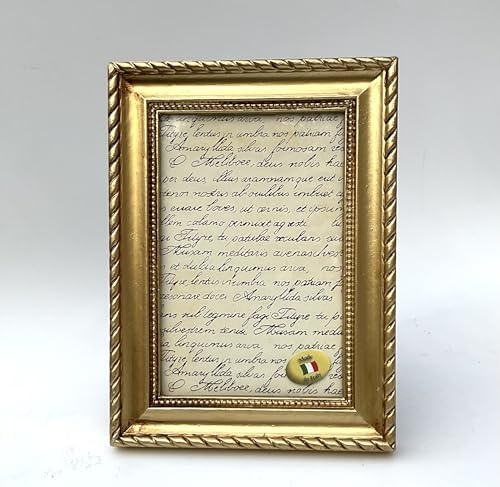 linquimus arva, nos patriae
Tityre, lentus in umbra nos patriam f
Amaryllida silvas formosam res
O Meliboee, deus nobis hae
per deus, illius cramnamque erit
tenor nostris ab ovilibus imbuet a
s errare boves, ut cernis, et ipsum
llem calamo permisit agresti. lu
gi Tityre, tu patulae recubans sub
Musam meditaris avenashvest
s et dulcia linquimus arva, nos
Tityre, lentus in umbra nos patriam f
resonare doces Amaryllida silvas
ans sub tegmine fagi Tityre tu p
silvestrem tenui Musam medi
ia linquimus arva, nos patriae
Tityre, lentus in umbra nos
Amaryllida silvas
O Meliboee, deus nobis hae